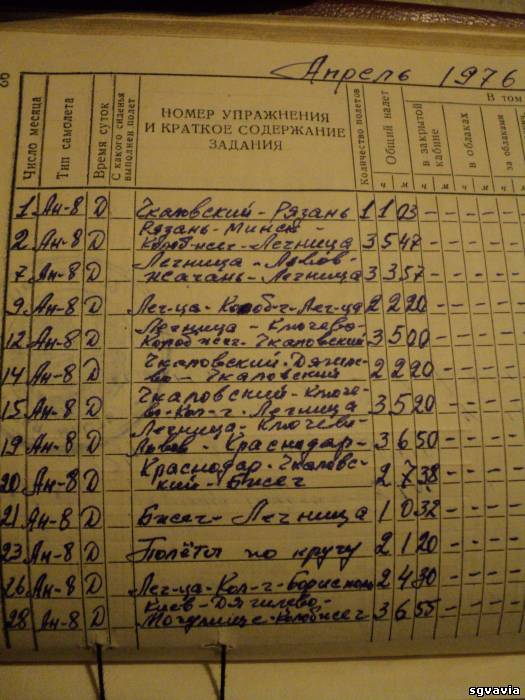 Апрель 1976
Число месяца
Тип самолета
Время суток
С какого сиденья
выполнен полет
НОМЕР УПРАЖНЕНИЯ
И КРАТКОЕ СОДЕРЖАНИЕ
ЗАДАНИЯ
Количество полетов
Общий налет
В том
в закрытой
кабине
в облаках
за облаками
ч м ч м ч м ч
1 Ан-8 Д Чкаловский - Рязань 1 1 03 - - - - -
Рязань - Минск -
2 Ан-8 Д - Легница 3 5 47 - - - - -
Легница - Львов -
7 Ан-8 Д - Легница 3 3 57 - - - - -
9 Ан-8 Д Лег-ца - - Лег-ца 2 2 20 - - - - -
Легница - Ключево -
12 Ан-8 Д Чкаловский 3 5 00 - - - - -
Чкаловский - Дягиле-
14 Ан-8 Д во - Чкаловский 2 2 20 - - - - -
Чкаловский - Ключе-
15 Ан-8 Д во - Кол-г - Легница 3 5 20 - - - - -
Легница - Ключево -
19 Ан-8 Д Львов - Краснодар - 3 6 50 - - - - -
Краснодар - Чкаловс-
20 Ан-8 Д кий - Бжег 2 7 38 - - - - -
21 Ан-8 Д Бжег - Легница 1 0 32 - - - - -
23 Ан-8 Д Полёты по кругу 2 1 20 - - - - -
26 Ан-8 Д Лег-ца - Кол-г - Борисполь 2 4 30 - - - - -
Киев - Дягилево -
28 Ан-8 Д 3 6 55 - - - - -
sgvavia